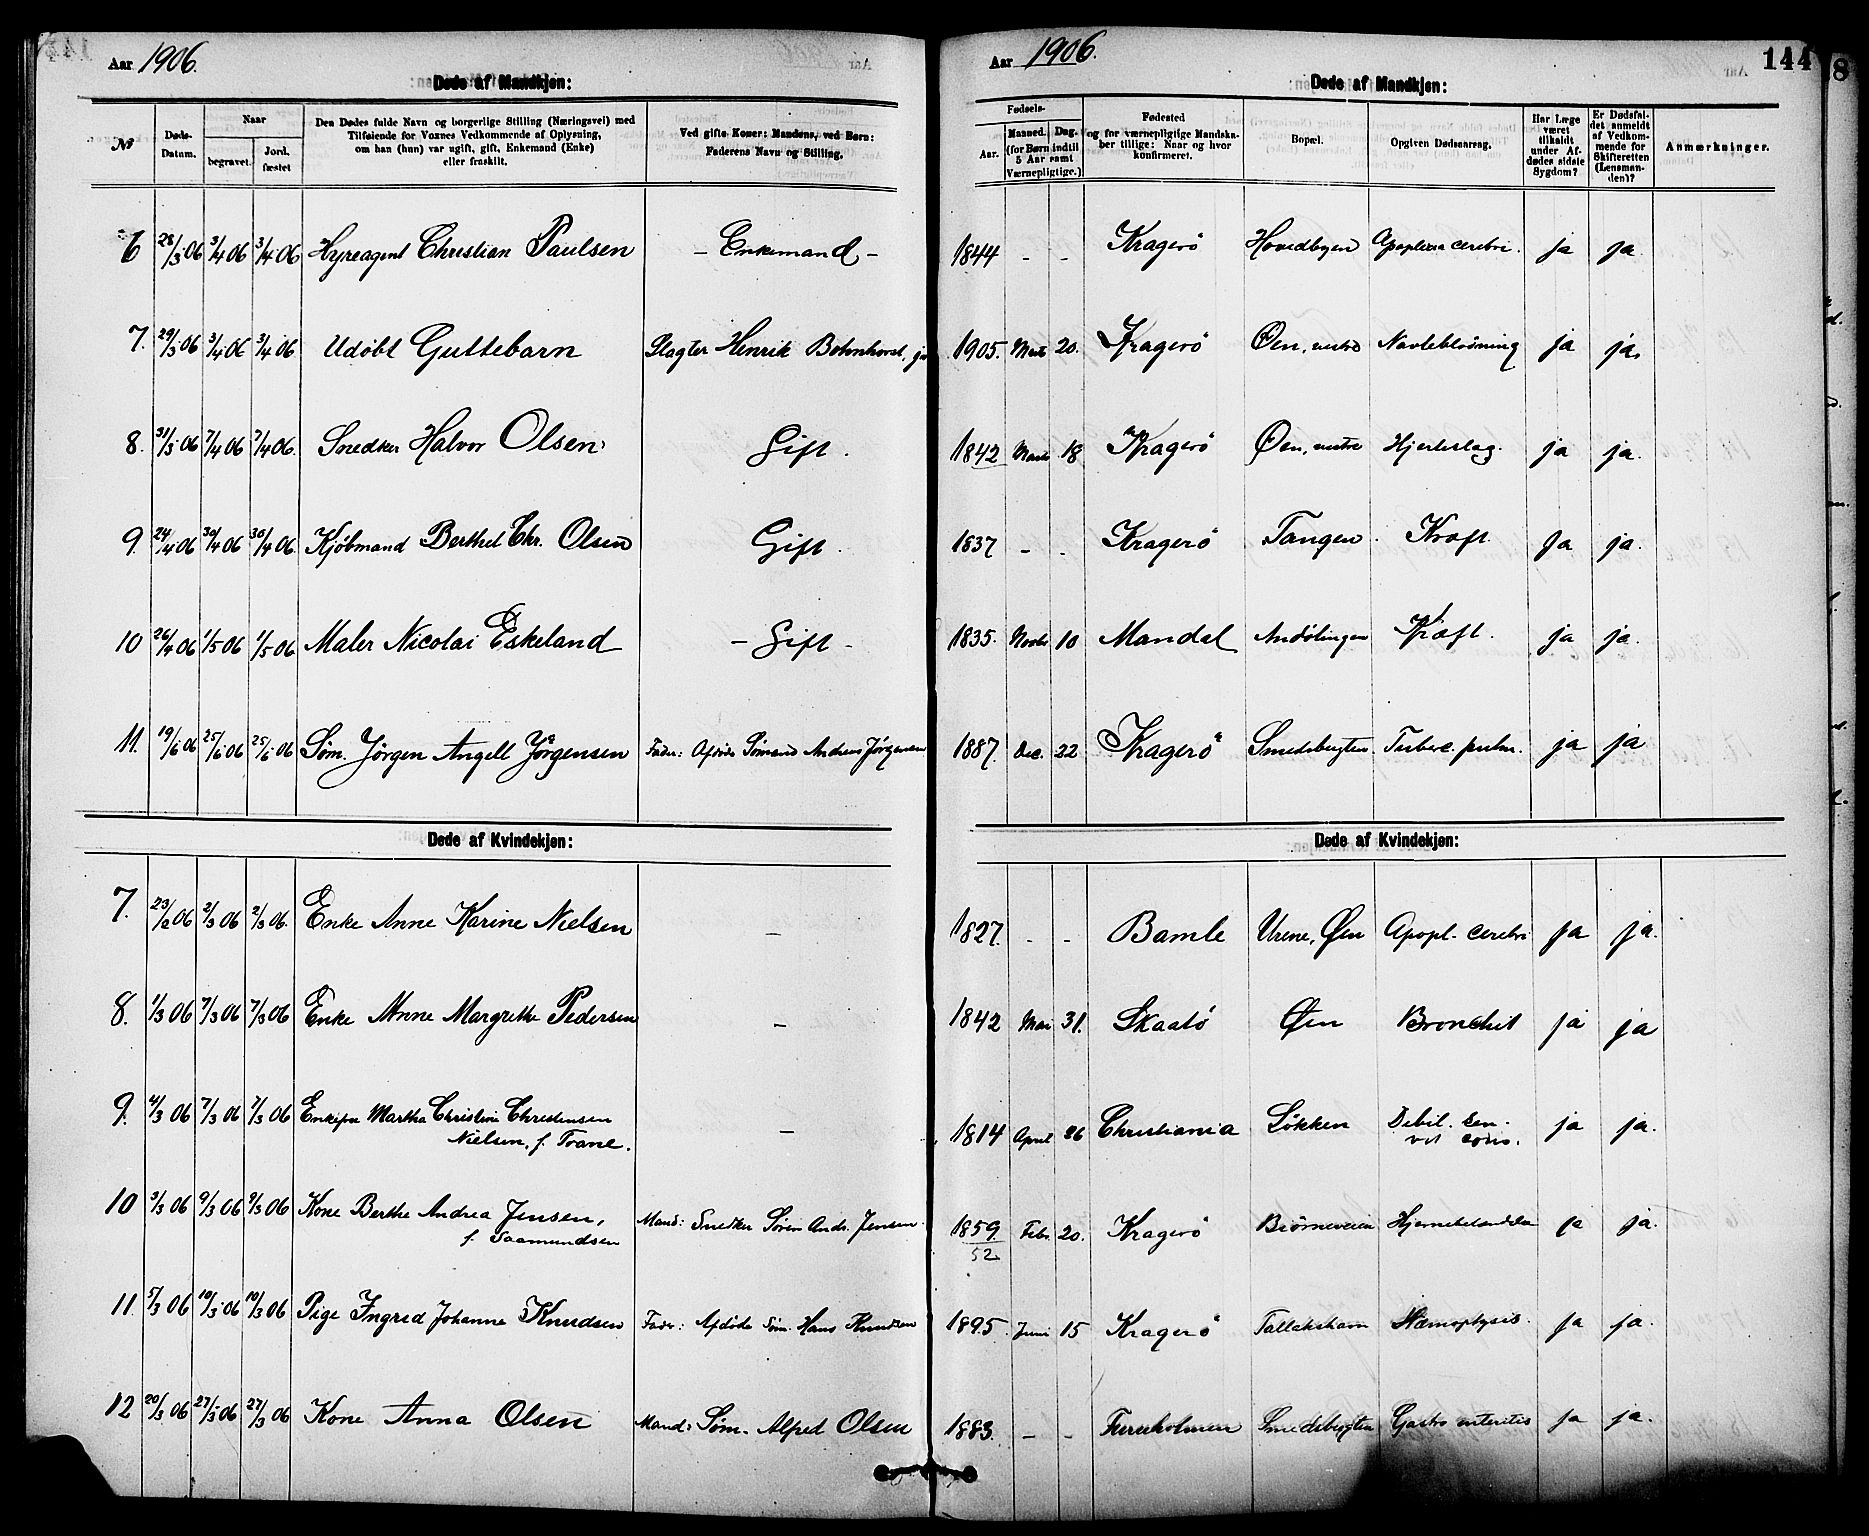 Aar 1906.
Døde af Mandkjøn:
№ Døds-Datum. Naar begravet. Jord. fæstet Den Dødes fulde Navn og borgerlige Stilling (Næringsvei) med Tilføiende for Voxnes Vedkommende af Oplysning, om han (hun) var ugift, gift, Enkemand (Enke) eller fraskilt. Ved gifte Koner: Mandens, ved Børn: Faderens Navn og Stilling.
6 28/3 06 3/4 06 3/4 06 Hyreagent Christian Paulsen – Enkemand –
7. 29/3 06 3/4 06 3/4 06 Udøbt Guttebarn Slagter Henrik Bohnhorst, jr
8. 31/3 06 7/4 06 7/4 06. Snedker Halvor Olsen Gift.
9. 24/4 06 30/4 06 30/4 06. Kjøbmand Berthel Chr. Olsen Gift.
10 26/4 06 1/5 06 1/5 06 Maler Nicolai Eskeland – Gift –
11. 19/6 06 25/6 06 25/6 06 Søm. Jörgen Angell Jörgensen Fader: Afdøde Sømand Andreas Jörgensen
Døde af Kvindekjøn:
7. 23/2 06 2/3 06 2/3 06. Enke Anne Karine Nielsen –
8. 1/3 06 7/3 06 7/3 06 Enke Anne Margrethe Pedersen –
9. 4/3 06 7/3 06 7/3 06 Enkefru Martha Christine Christensen –
Nielsen, f. Tvane.
10 3/3 06 9/3 06 9/3 06 Kone Berthe Andrea Jensen, Mand: Snedker Sören Andr. Jensen
f. Saamundsen
11. 5/3 06 10/3 06 10/3 06 Pige Ingrid Johanne Knudsen Fader: Afdøde Søm. Hans Knudsen
12 20/3 06 27/3 06 27/3 06 Kone Anna Olsen Mand: Søm. Alfred Olsen
Aar 1906.
144
Døde af Mandkjøn:
Fødsels- Aar. Maaned. Dag. (for Børn indtil 5 Aar samt Værnepligtige.) Fødested og for værnepligtige Mandskaber tillige: Naar og hvor konfirmeret. Bopæl. Opgiven Dødsaarsag. Har Læge været tilkaldt under Afdødes sidste Sygdom? Er Dødsfaldet anmeldt af Vedkommende for Skifteretten (Lensmanden)? Anmærkninger.
1844 – – Kragerö Hovedbyen Apoplexia cerebri. ja ja.
1905. Marts 20. Kragerö Øen, vestre Navleblödning ja ja.
1842 Marts 18 Kragerö Øen, vestre Hjerteslag. ja ja.
1837 – – Kragerö Tangen. Kræft ja ja.
1835. Novbr 10 Mandal Kræft. ja ja.
1887. Dec. 22 Kragerö Smedsbugten Tuberc. pulm. ja ja
Døde af Kvindekjøn:
1827. – – Bamle Urene, Øen Apopl. cerebri ja ja.
1842 Mai 31. Skaatö Øen Bronchit ja ja
1814 April 26 Christiania Lökken Debil. sen. ja ja.
1859. Febr. 20. Kragerö Björneveien ja ja.
52
1895. Juni 15 Kragerö Tallakshavn Hæmoptysis. ja ja.
1883. – – Furuholmen Smedsbugten Gastro enteritis ja ja.